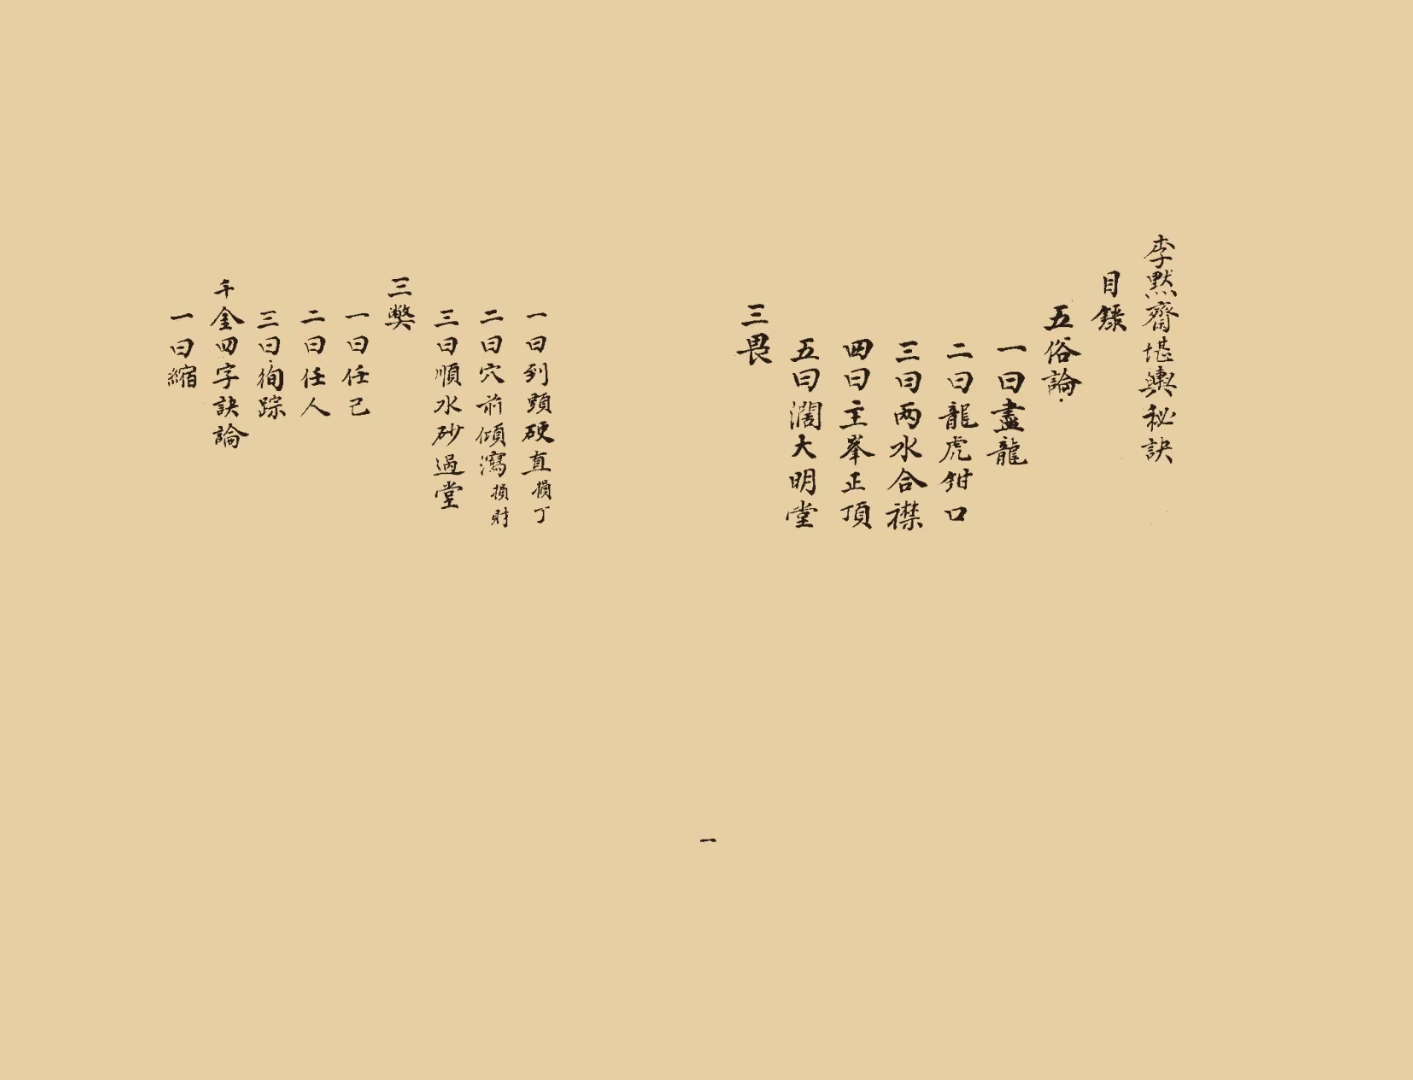 李默齋堪輿秘訣
目錄
五俗論
一曰盡龍
二曰龍虎鉗口
三曰两水合襟
四曰主峯正頂
五曰濶大明堂
三畏
一曰到頭硬直損丁
二曰穴前傾瀉損財
三曰順水砂過堂
三獘
一曰任己
二曰任人
三曰徇踪
千金四字訣論
一曰縮
一